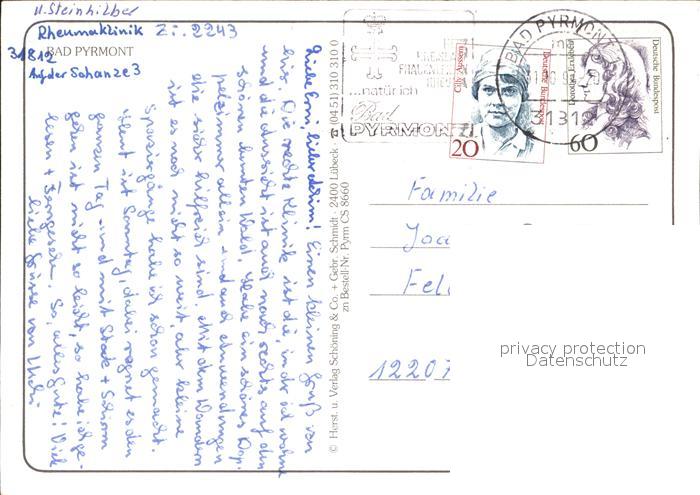 U. Steinhilber
Rheumaklinik Zi. 2243
31812 BAD PYRMONT
Auf der Schanze 3
Einen kleinen Gruß von
hier. Die rechte Klinik ist die, in der ich wohne
und die Aussicht ist auch nach rechts auf den
schönen bunten Wald. Habe ein schönes Dop-
pelzimmer allein und auch Anwendungen
die sehr hilfreich sind. Mit dem Wandern
ist es noch nicht so weit, aber kleine
Spaziergänge habe ich schon gemacht.
Heut ist Sonntag, dabei regnet es den
ganzen Tag und mit Stock + Schirm
gehen ist nicht so leicht, so habe ich ge-
lesen + Ferngesehn. So, alles Gute! Viele
liebe Grüße von
© Herst. u. Verlag Schöning & Co. + Gebr. Schmidt · 2400 Lübeck · ☎ (04 51) 310 310 0
zn Bestell-Nr. Pyrm CS 8660
...natürlich
Bad
PYRMONT
BAD PYRMONT
31812
Cilly Aussem
Deutsche Bundespost
20
Deutsche Bundespost
60
Familie
Joa
Fel
12207
privacy protection
Datenschutz